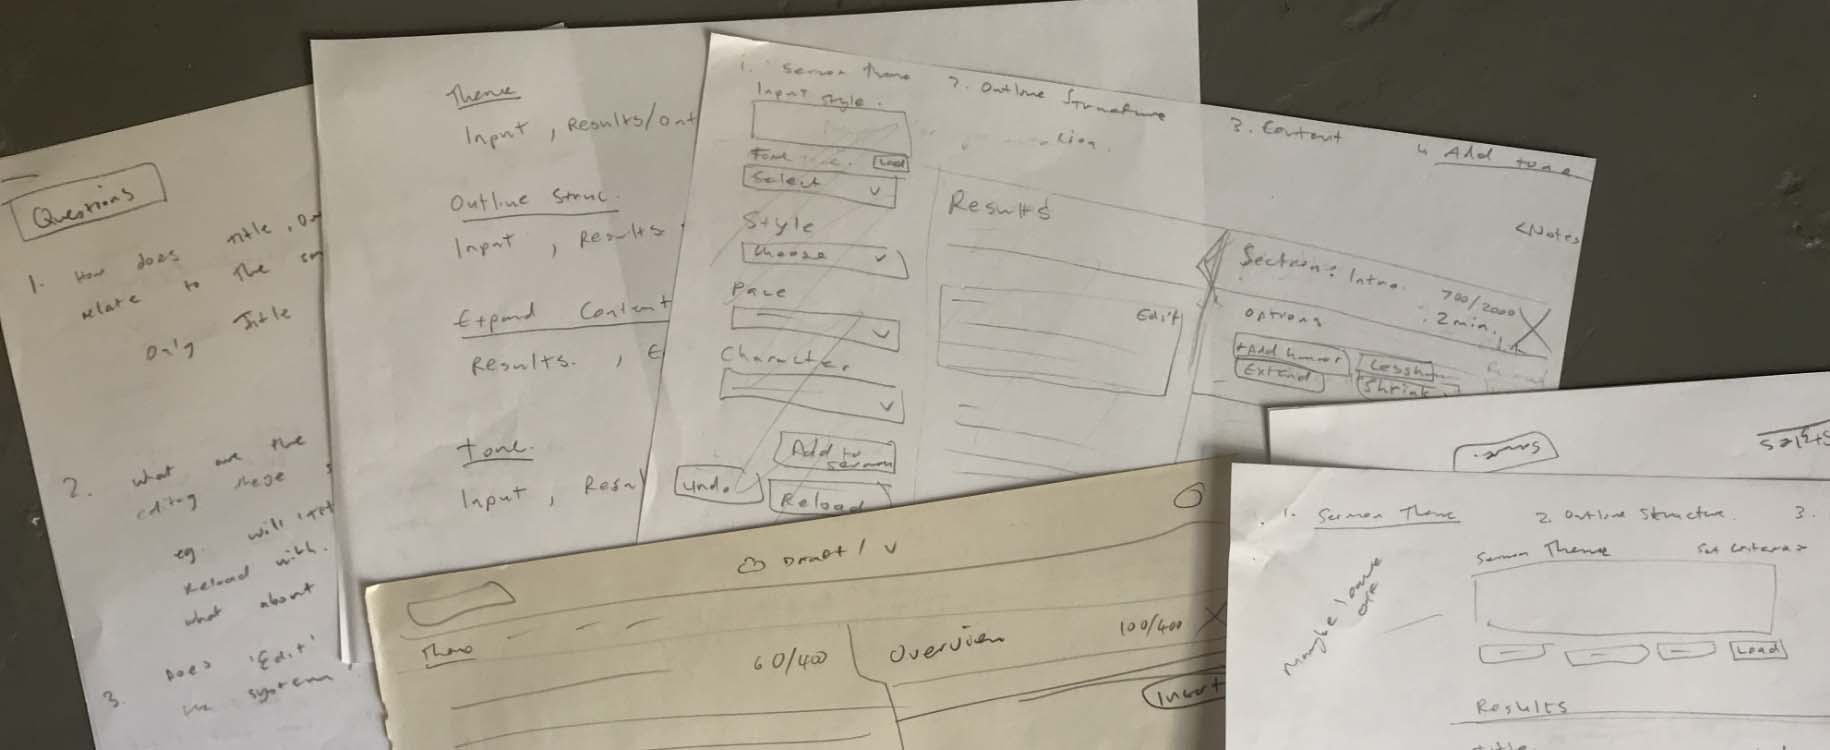 Questions
1. How does Title, Ou
relate to the
Only Title
2. What are the
editing these
eg. will
Reload with.
what about
3. Does 'Edit'
the system
Theme
Input, Results/Out
Outline Struc.
Input, Results
Expand Content
Results. , E
Tone.
Input, Resul
1. Sermon Theme
2. Outline Structure
3. Content
4. Add tone
Input style.
Load
Select
Style
Choose
Pace
Character
Add to
sermon
Undo
Reload
Results
Edit
<Notes
Section: Intro.
700/2000
: 2 min.
Options
+Add humor
Extend
Shrink
Draft 1
60/400
Overview
100/400
Insert
Styles
1. Sermon Theme
2. Outline Structure.
3.
Sermon Theme
Set Criteria >
Maybe leave
Load
Results
Title